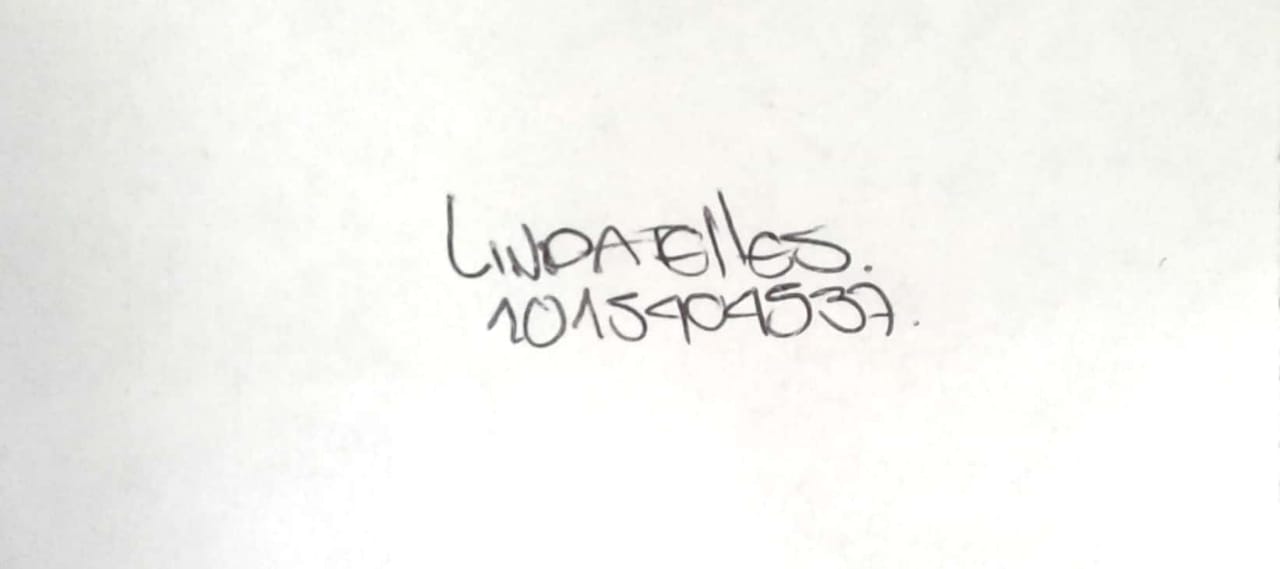 LINDA Elles.
1015404537.